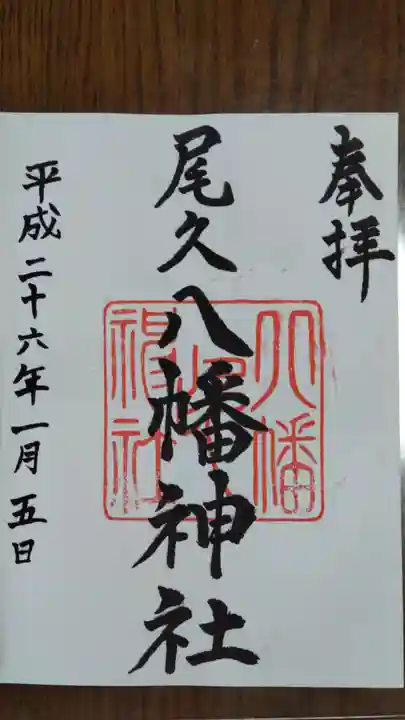 奉拝
尾久八幡神社
八幡
神社
平成二十六年一月五日